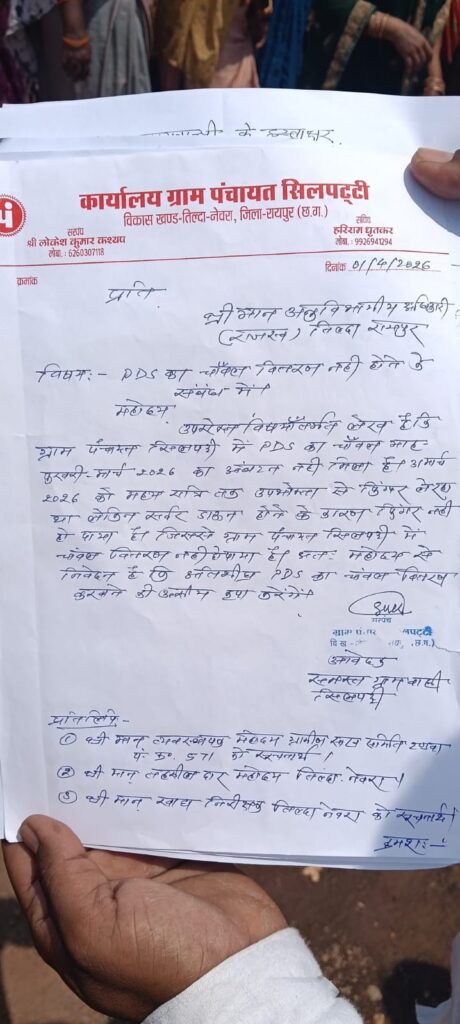 के हस्ताक्षर
कार्यालय ग्राम पंचायत सिलपट्टी
विकास खण्ड-तिल्दा-नेवरा, जिला-रायपुर (छ.ग.)
सरपंच
श्री लोकेश कुमार कश्यप
मोबा. : 6260307118
सचिव
हरिराम धृतकर
मोबा. : 9926941294
क्रमांक
दिनांक 01/4/2026
प्रति,
श्री मान अनुविभागीय अधिकारी
(राजस्व) तिल्दा रायपुर
विषय:- PDS का चाँवल वितरण नही होने के
संबंध में।
महोदय,
उपरोक्त विषयांतर्गत लेख है कि
ग्राम पंचायत सिलपट्टी में PDS का चाँवल माह
फरवरी-मार्च 2026 का आबंटन नही मिला है। मार्च
2026 को मध्य रात्रि तक उपभोक्ता से फिंगर लेना
था लेकिन सर्वर डाऊन होने के कारण फिंगर नही
हो पाया है। जिससे ग्राम पंचायत सिलपट्टी में
चंवल वितरण नही हो पाया है। अतः महोदय से
निवेदन है कि अतिशीघ्र PDS का चंवल वितरण
करवाने की असीम कृपा करेंगे।
सरपंच
ग्राम पं लपट्टी
वि.ख. (छ.ग.)
आवेदक
समस्त ग्रामवासी
सिलपट्टी
प्रतिलिपि:-
① श्री मान व्यवस्थापक महोदय ग्रामीण साख समिति
पं. क्र. 571 को सूचनार्थ।
② श्री मान् तहसीलदार महोदय तिल्दा-नेवरा।
③ श्री मान् खाद्य निरीक्षक तिल्दा नेवरा को सूचनार्थ।
क्रमशः-